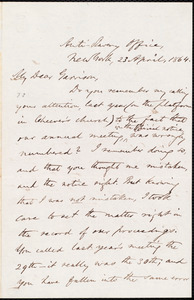 Anti Slavery Office,
New York, 23 April, 1864.
My Dear Garrison,
Do you remember my calling
your attention, last year from the platform
in Cheever's church, to the fact that
in the official notice
our annual meeting was wrongly
numbered? I remember doing so
and that you thought me mistaken
and the notice right. But knowing
that I was not mistaken, I took
care to set the matter right in
the record of our proceedings.
You called last year's meeting the
29th it really was the 30th; and
you have fallen into the same error